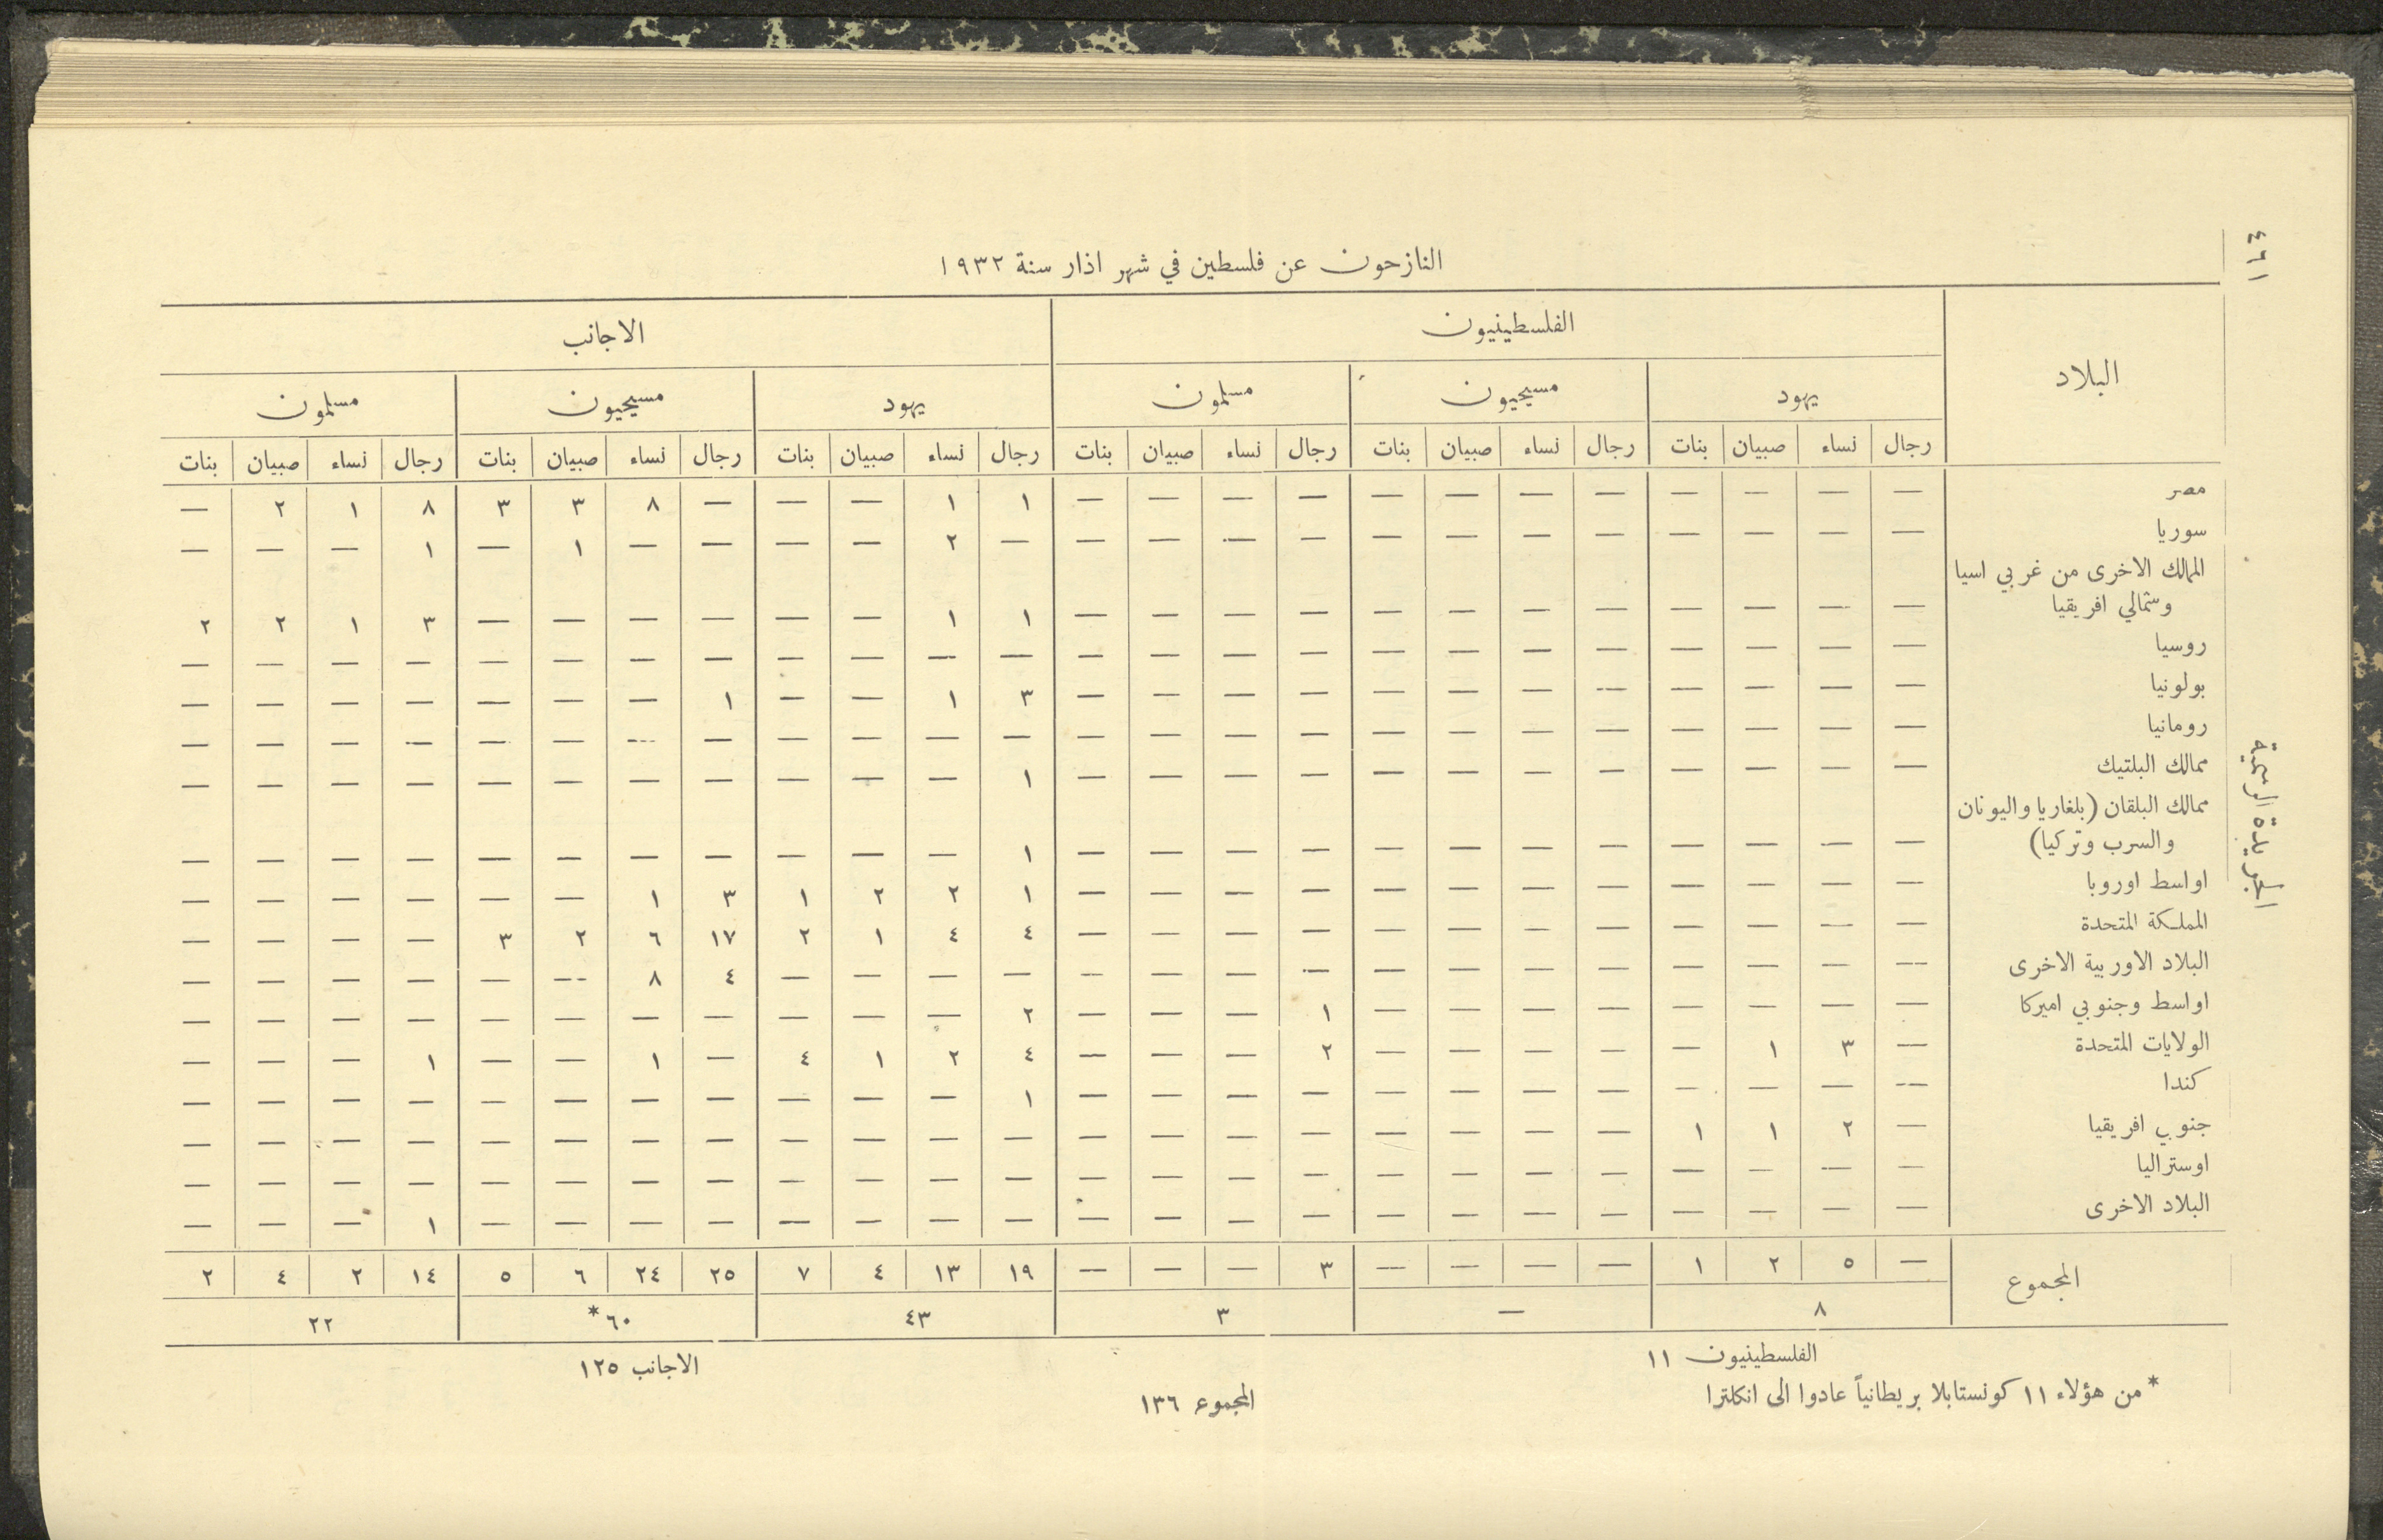 ٤٦١
الجريدة الرسمية
النازحون عن فلسطين في شهر اذار سنة ١٩٣٢
البلاد الفلسطينيون الاجانب
يهود مسيحيون مسلمون يهود مسيحيون مسلمون
رجال نساء صبيان بنات رجال نساء صبيان بنات رجال نساء صبيان بنات رجال نساء صبيان بنات رجال نساء صبيان بنات رجال نساء صبيان بنات
مصر — — — — — — — — — — — — ١ ١ — — — ٨ ٣ ٣ ٨ ١ ٢ —
سوريا — — — — — — — — — — — — — ٢ — — — — ١ — ١ — — —
الممالك الاخرى من غربي اسيا
وشمالي افريقيا — — — — — — — — — — — — ١ ١ — — — — — — ٣ ١ ٢ ٢
روسيا — — — — — — — — — — — — — — — — — — — — — — — —
بولونيا — — — — — — — — — — — — ٣ ١ — — ١ — — — — — — —
رومانيا — — — — — — — — — — — — — — — — — — — — — — — —
ممالك البلتيك — — — — — — — — — — — — ١ — — — — — — — — — — —
ممالك البلقان (بلغاريا واليونان
والسرب وتركيا) — — — — — — — — — — — — ١ — — — — — — — — — — —
اواسط اوروبا — — — — — — — — — — — — ١ ٢ ٢ ١ ٣ ١ — — — — — —
المملكة المتحدة — — — — — — — — — — — — ٤ ٤ ١ ٢ ١٧ ٦ ٢ ٣ — — — —
البلاد الاوربية الاخرى — — — — — — — — — — — — — — — — ٤ ٨ — — — — — —
اواسط وجنوبي اميركا — — — — — — — — ١ — — — ٢ — — — — — — — — — — —
الولايات المتحدة — ٣ ١ — — — — — ٢ — — — ٤ ٢ ١ ٤ — ١ — — ١ — — —
كندا — — — — — — — — — — — — ١ — — — — — — — — — — —
جنوبي افريقيا — ٢ ١ ١ — — — — — — — — — — — — — — — — — — — —
اوستراليا — — — — — — — — — — — — — — — — — — — — — — — —
البلاد الاخرى — — — — — — — — — — — — — — — — — — — — ١ — — —
المجموع — ٥ ٢ ١ — — — — ٣ — — — ١٩ ١٣ ٤ ٧ ٢٥ ٢٤ ٦ ٥ ١٤ ٢ ٤ ٢
٨ — ٣ ٤٣ ٦٠* ٢٢
الفلسطينيون ١١ الاجانب ١٢٥
* من هؤلاء ١١ كونستابلا بريطانياً عادوا الى انكلترا
المجموع ١٣٦